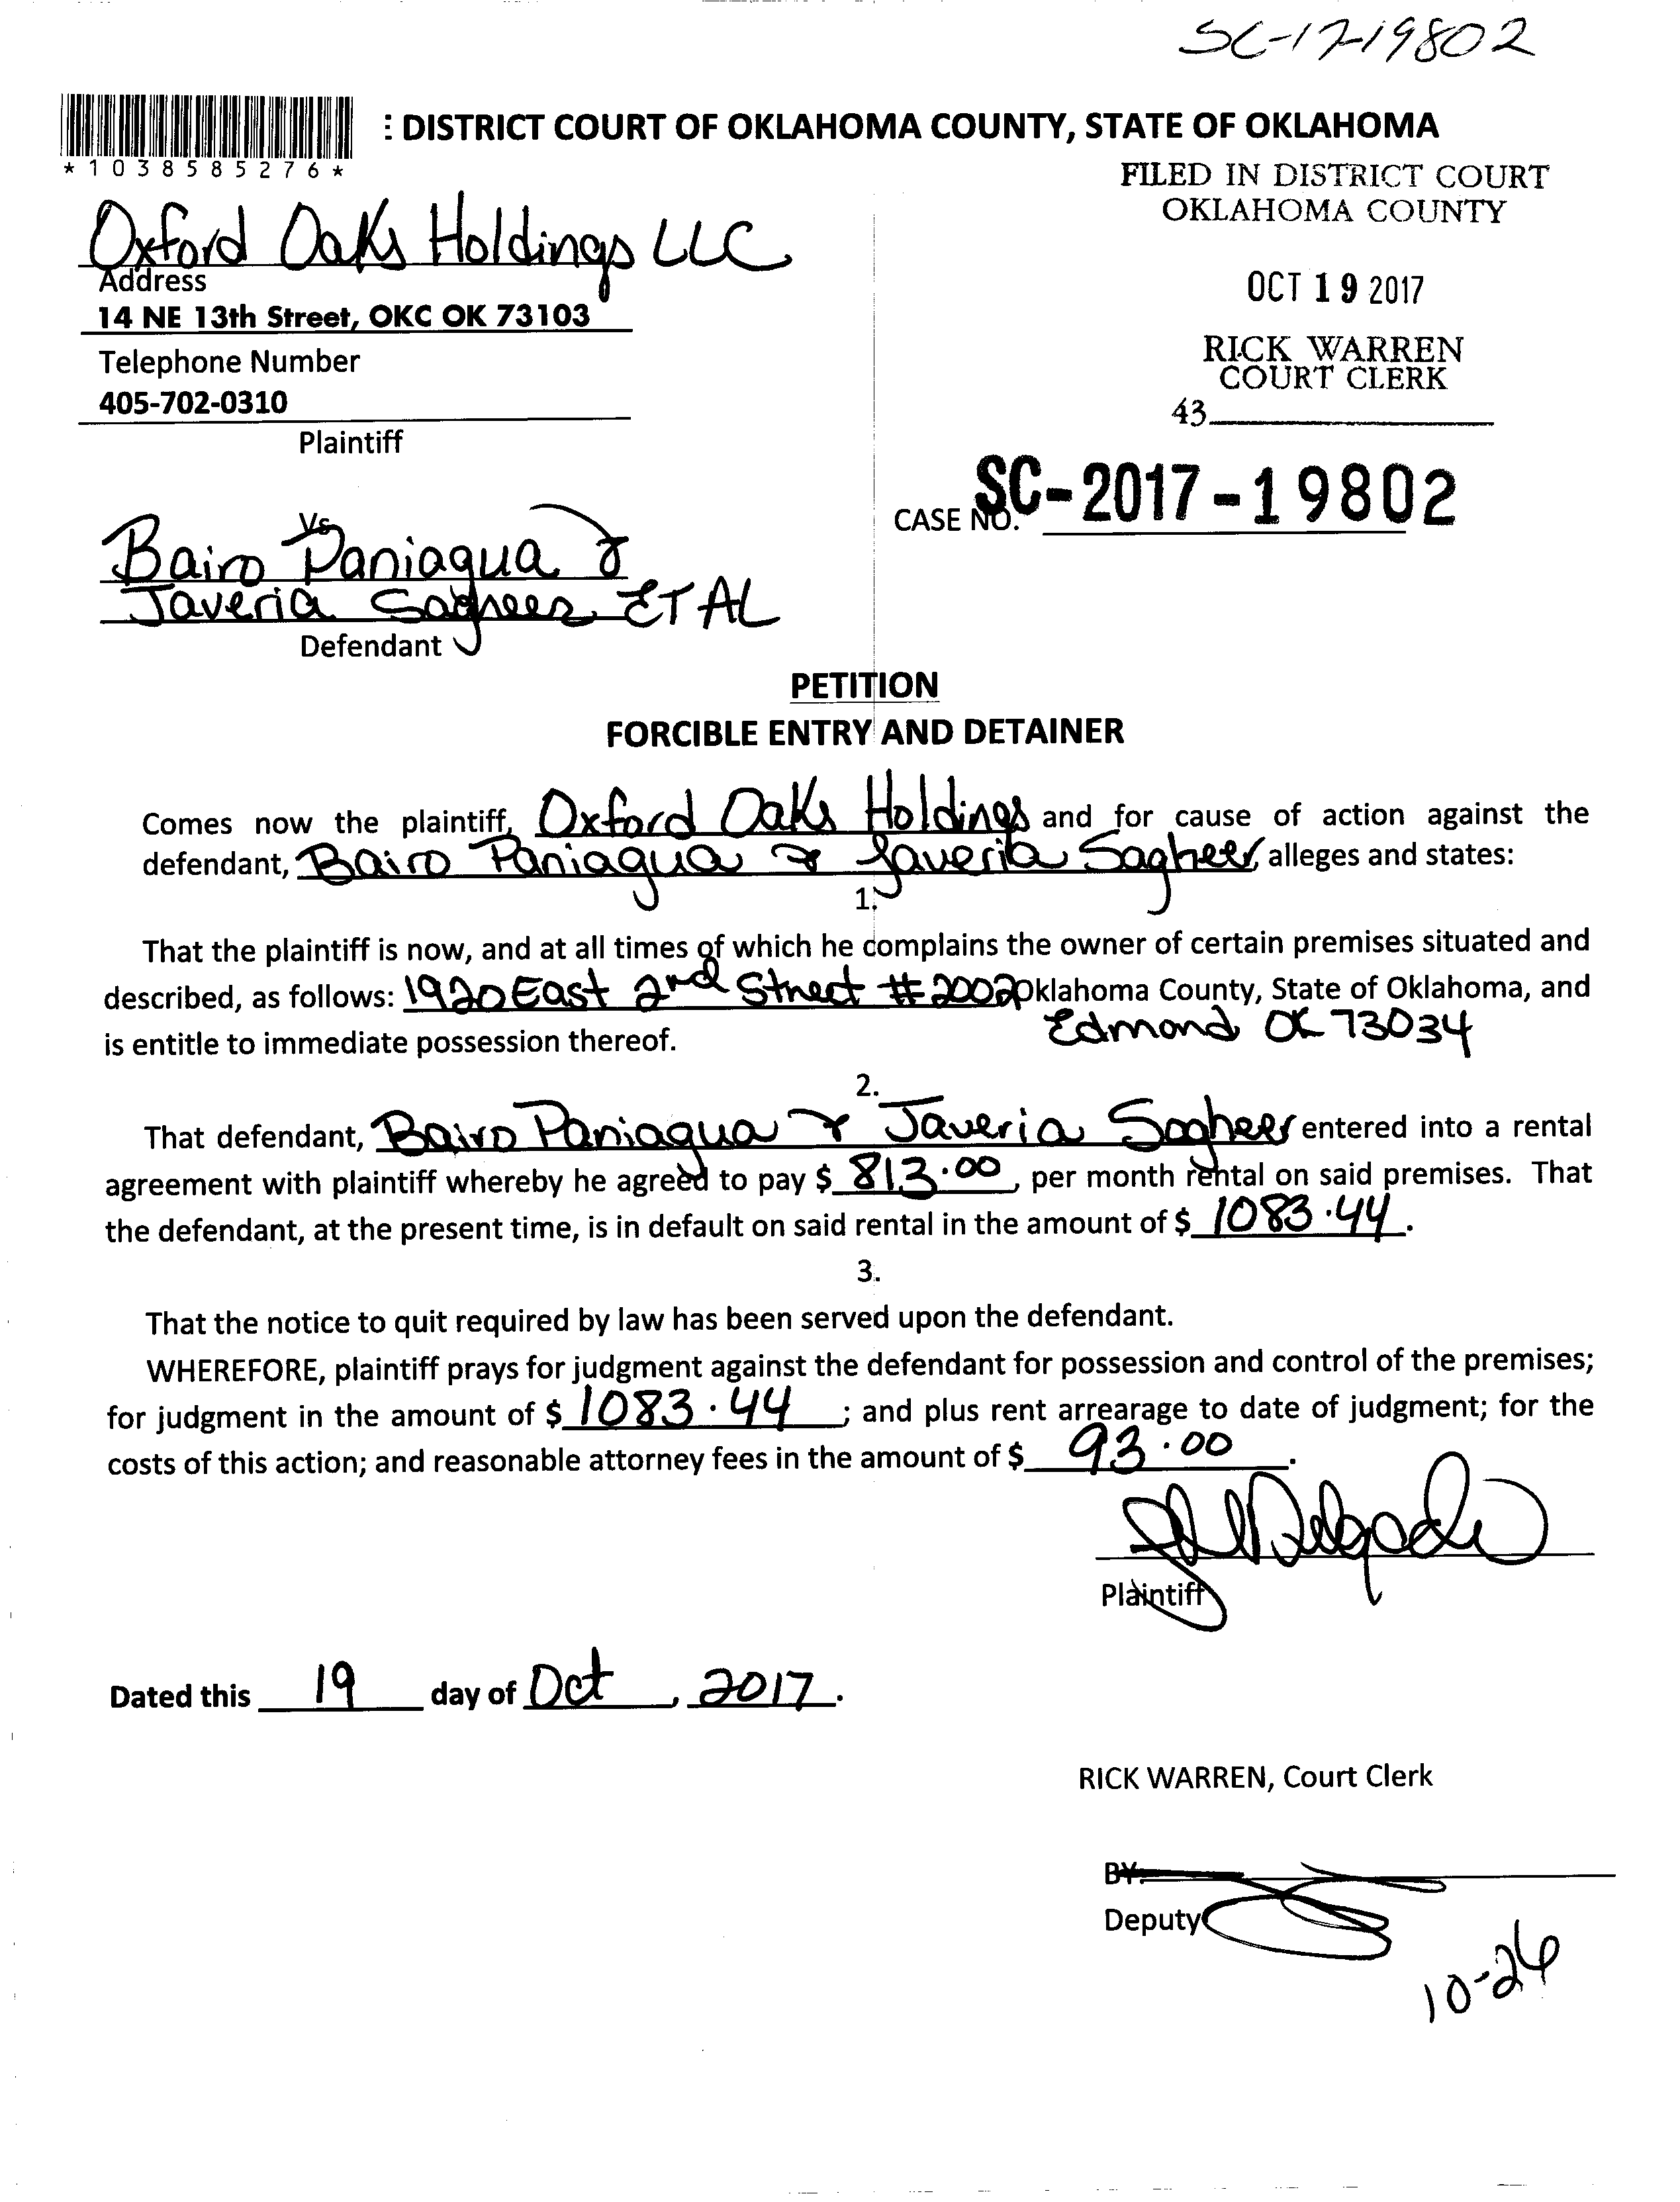 SC-17-19802
: DISTRICT COURT OF OKLAHOMA COUNTY, STATE OF OKLAHOMA
*1038585276*
FILED IN DISTRICT COURT
OKLAHOMA COUNTY
Oxford Oaks Holdings LLC
Address
OCT 19 2017
14 NE 13th Street, OKC OK 73103
Telephone Number
RICK WARREN
COURT CLERK
405-702-0310
43
Plaintiff
CASE NO. SC-2017-19802
Vs
Bairo Paniagua &
Javeria Sagheer ET AL
Defendant
PETITION
FORCIBLE ENTRY AND DETAINER
Comes now the plaintiff, Oxford Oaks Holdings and for cause of action against the
defendant, Bairo Paniagua & Javeria Sagheer, alleges and states:
1.
That the plaintiff is now, and at all times of which he complains the owner of certain premises situated and
described, as follows: 1920 East 2nd Street #2002 Oklahoma County, State of Oklahoma, and
Edmond OK 73034
is entitle to immediate possession thereof.
2.
That defendant, Bairo Paniagua & Javeria Sagheer entered into a rental
agreement with plaintiff whereby he agreed to pay $ 813.00, per month rental on said premises. That
the defendant, at the present time, is in default on said rental in the amount of $ 1083.44.
3.
That the notice to quit required by law has been served upon the defendant.
WHEREFORE, plaintiff prays for judgment against the defendant for possession and control of the premises;
for judgment in the amount of $ 1083.44; and plus rent arrearage to date of judgment; for the
costs of this action; and reasonable attorney fees in the amount of $ 93.00.
Delgado
Plaintiff
Dated this 19 day of Oct, 2017.
RICK WARREN, Court Clerk
BY:
Deputy
10-26